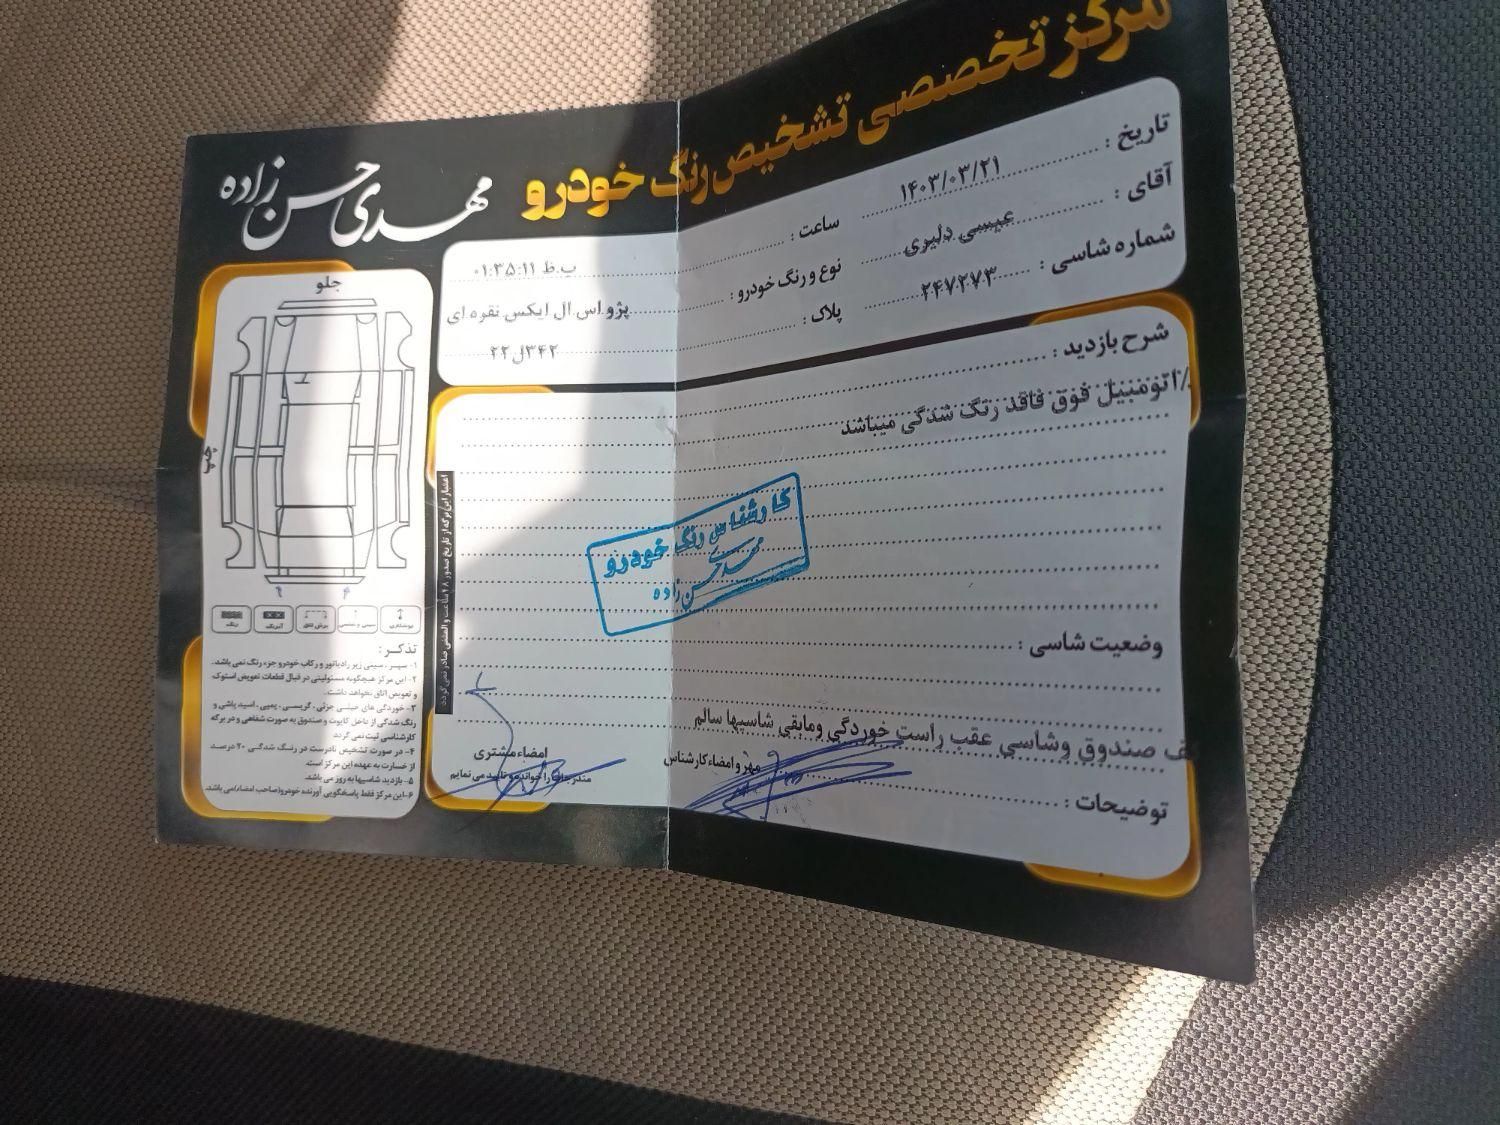 مرکز تخصصی تشخیص رنگ خودرو
مهدی حسن زاده
تاریخ : ۱۴۰۳/۰۳/۲۱
ساعت : ۰۱:۳۵:۱۱ ب.ظ
آقای : عیسی دلیری
نوع و رنگ خودرو : پژو اس ال ایکس نقره ای
شماره شاسی : ۲۴۷۲۷۳
پلاک : ۳۴۲ل۲۲
شرح بازدید :
اتومبیل فوق فاقد رنگ شدگی میباشد
کارشناس رنگ خودرو
مهدی حسن زاده
وضعیت شاسی :
کف صندوق وشاسی عقب راست خوردگی ومابقی شاسیها سالم
توضیحات :
مهر و امضاء کارشناس
امضاء مشتری
مندرجات را خوانده و تایید می نمایم
اعتبار این برگه از تاریخ صدور ۴۸ ساعت و المثنی صادر نمی گردد
جلو
چپ
رنگ
آبرنگ
تذکر :
۱- سپر ، سینی زیر رادیاتور و رکاب خودرو جزء رنگ نمی باشد.
۲- این مرکز هیچگونه مسئولیتی در قبال قطعات تعویض استوک
و تعویض اتاق نخواهد داشت.
۳- خوردگی های خیلی جزئی ، گریسی ، پمپی ، اسید پاشی و
رنگ شدگی از داخل کاپوت و صندوق به صورت شفاهی و در برگه
کارشناسی ثبت نمی گردد.
۴- در صورت تشخیص نادرست در رنگ شدگی ۲۰ درصد
از خسارت به عهده این مرکز است.
۵- بازدید شاسیها به روز می باشد.
۶- این مرکز فقط پاسخگویی آورنده خودرو(صاحب امضاء)می باشد.